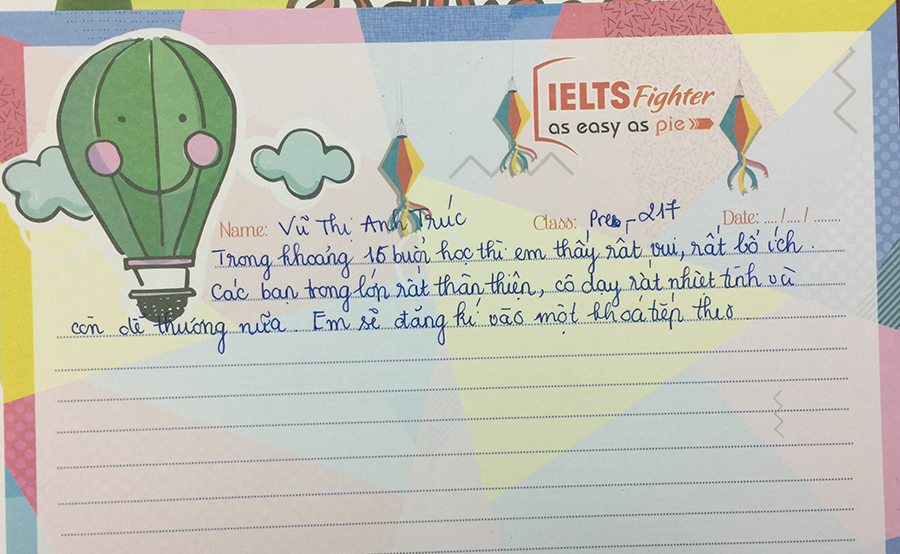 IELTS Fighter
as easy as pie
Name: Vũ Thị Anh Trúc Class: Pres - 217 Date: .... /.... / ........
Trong khoảng 15 buổi học thì em thấy rất vui, rất bổ ích.
Các bạn trong lớp rất thân thiện, cô dạy rất nhiệt tình và
còn dễ thương nữa. Em sẽ đăng kí vào một khoá tiếp theo.